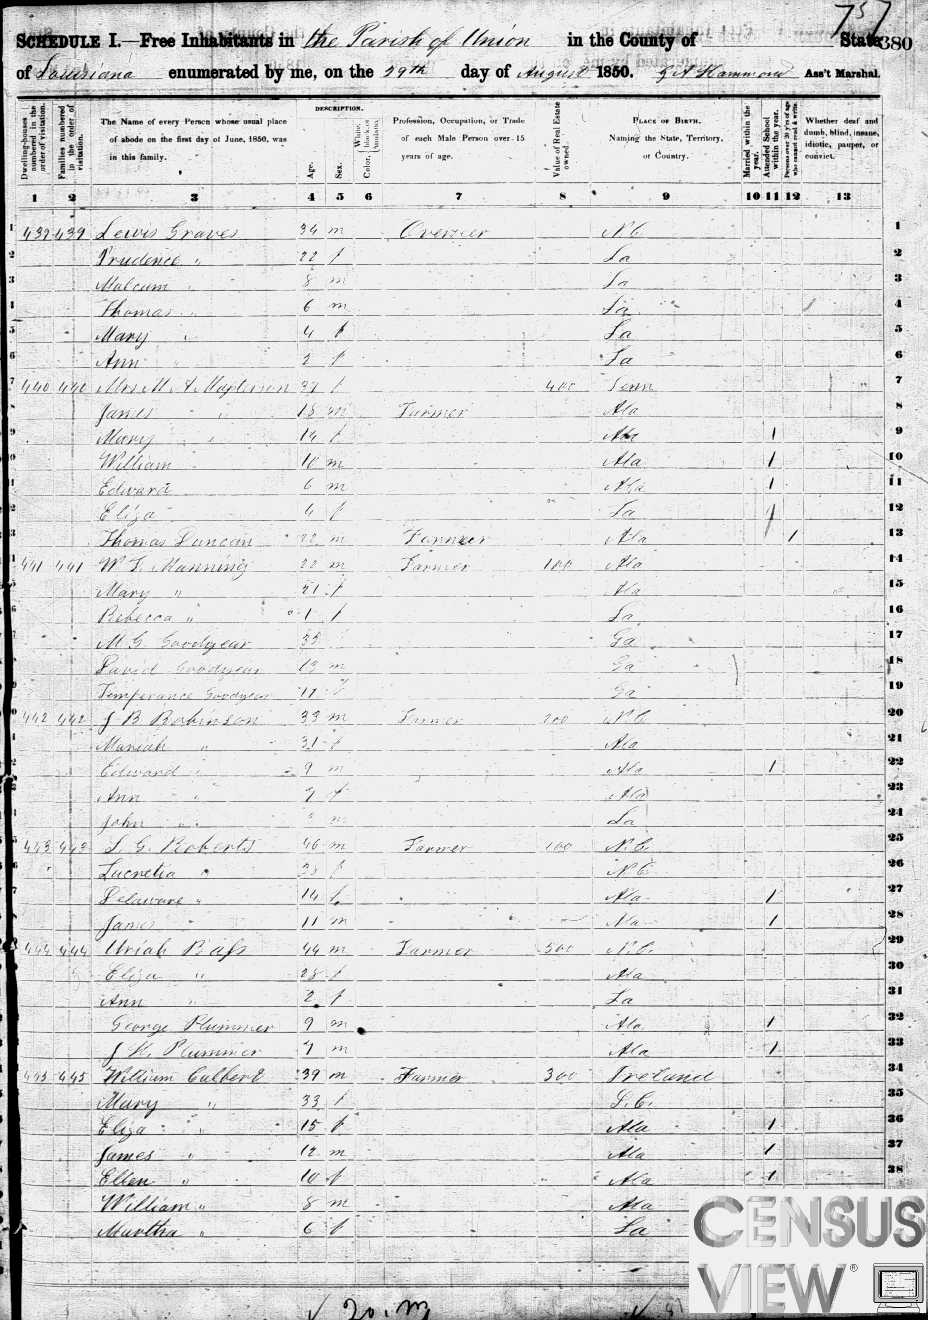 757
SCHEDULE I.—Free Inhabitants in the Parish of Union in the County of State 380
of Louisiana enumerated by me, on the 29th day of August 1850. Ass't Marshal.
Dwelling-houses numbered in the order of visitation.
Families numbered in the order of visitation.
The Name of every Person whose usual place of abode on the first day of June, 1850, was in this family.
DESCRIPTION.
Age.
Sex.
Color, White, black, or mulatto.
Profession, Occupation, or Trade of each Male Person over 15 years of age.
Value of Real Estate owned.
PLACE OF BIRTH. Naming the State, Territory, or Country.
Married within the year.
Attended School within the year.
Persons over 20 y'rs of age who cannot read & write.
Whether deaf and dumb, blind, insane, idiotic, pauper, or convict.
1 2 3 4 5 6 7 8 9 10 11 12 13
1 439 439 Lewis Graves 34 m Overseer N C 1
2 Prudence " 22 f La 2
3 Malcum " 8 m La 3
4 Thomas " 6 m La 4
5 Mary " 4 f La 5
6 Ann " 2 f La 6
7 440 440 Mrs M A 37 f 400 Tenn 7
8 James " 18 m Farmer Ala 8
9 Mary " 14 f Ala 1 9
10 William 10 m Ala 1 10
11 Edward 6 m Ala 1 11
12 Eliza 4 f La 1 12
13 Thomas Duncan 22 m Farmer Ala 1 13
14 441 441 W F. Manning 22 m Farmer 100 Ala 14
15 Mary " 21 f Ala 15
16 Rebecca " 1 f La 16
17 M G Goodyear 55 Ga 17
18 David Goodyear 13 m Ga 18
19 Temperance Goodyear 17 f Ga 19
20 442 442 J B Robinson 33 m Farmer 200 N C 20
21 Mariah " 31 f Ala 21
22 Edward " 9 m Ala 1 22
23 Ann " 7 f Ala 23
24 John " m La 24
25 443 443 G. Roberts 46 m Farmer 100 N. C. 25
26 Lucretia " 38 f N C 26
27 Delaware " 14 f Ala 1 27
28 James 11 m Ala 1 28
29 444 444 Uriah Bass 44 m Farmer 500 N. C. 29
30 Eliza " 28 f Ala 30
31 Ann " 2 f La 31
32 George Plummer 9 m Ala 1 32
33 J H. Plummer 7 m Ala 1 33
34 445 445 William Culbert 39 m Farmer 300 Ireland 34
35 Mary " 33 f S. C. 35
36 Eliza " 15 f Ala 1 36
37 James " 12 m Ala 1 37
38 Ellen " 10 f Ala 1 38
William " 8 m Ala
Martha " 6 f La
20. m
CENSUS
VIEW®